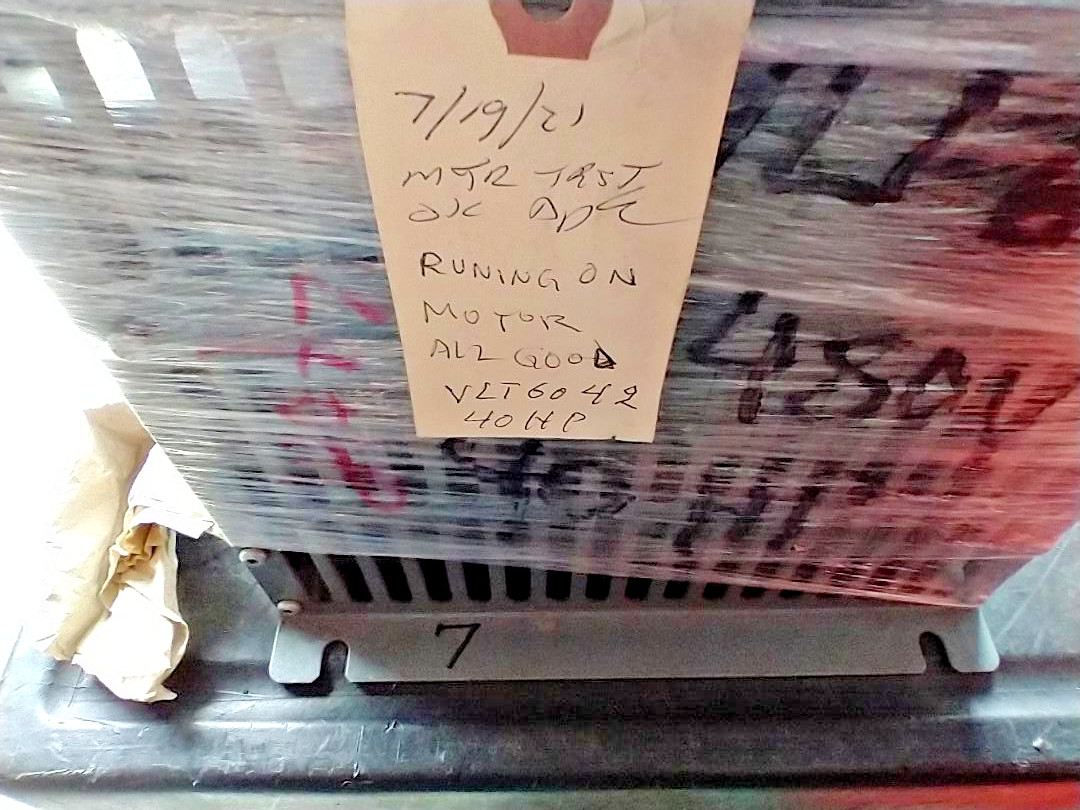 7/19/21
MTR TEST
OK
RUNING ON
MOTOR
ALL GOOD
VLT6042
40 HP
480V
40 HP
7